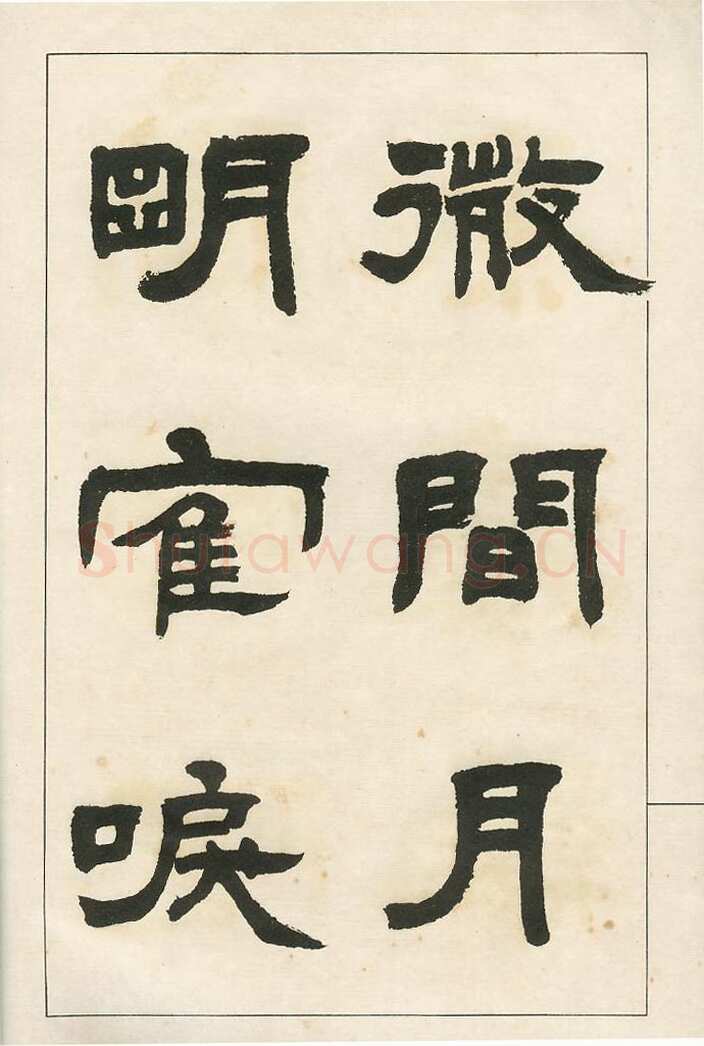 微間月
朙寉唳
Shufawang.CN